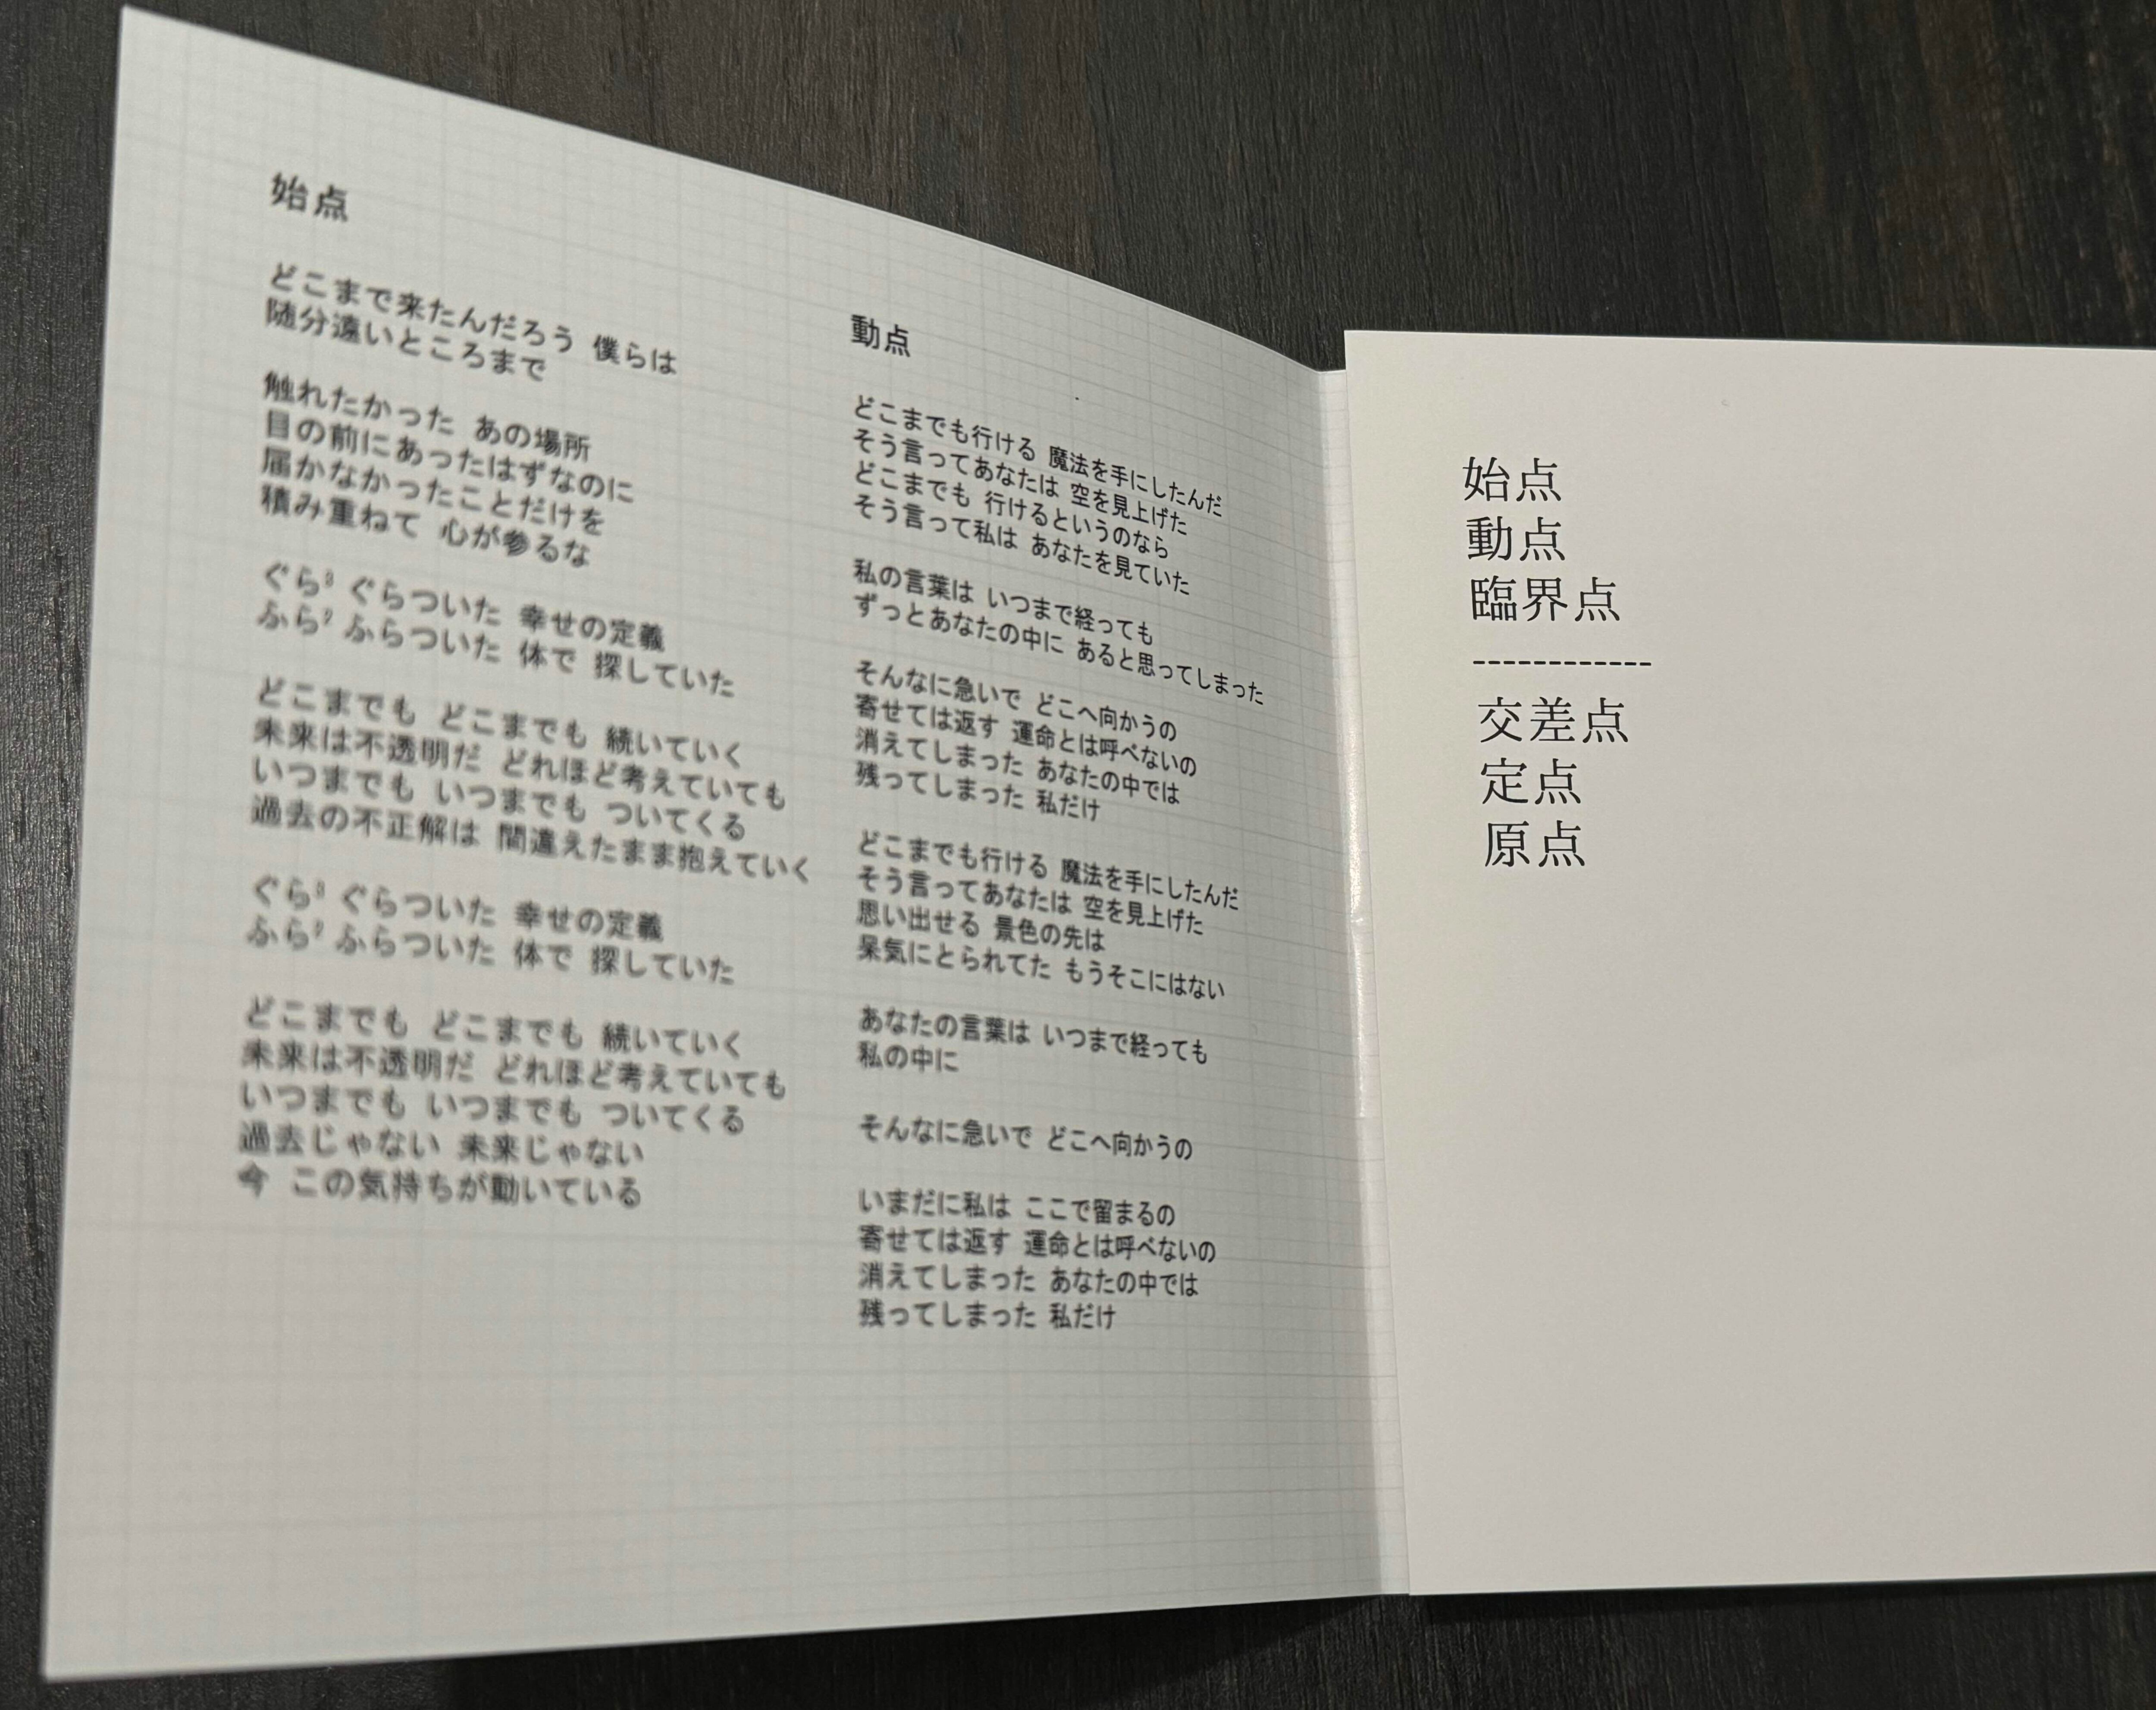 始点
どこまで来たんだろう 僕らは
随分遠いところまで
触れたかった あの場所
目の前にあったはずなのに
届かなかったことだけを
積み重ねて 心が参るな
ぐら³ ぐらついた 幸せの定義
ふら² ふらついた 体で 探していた
どこまでも どこまでも 続いていく
未来は不透明だ どれほど考えていても
いつまでも いつまでも ついてくる
過去の不正解は 間違えたまま抱えていく
ぐら³ ぐらついた 幸せの定義
ふら² ふらついた 体で 探していた
どこまでも どこまでも 続いていく
未来は不透明だ どれほど考えていても
いつまでも いつまでも ついてくる
過去じゃない 未来じゃない
今 この気持ちが動いている
動点
どこまでも行ける 魔法を手にしたんだ
そう言ってあなたは 空を見上げた
どこまでも 行けるというのなら
そう言って私は あなたを見ていた
私の言葉は いつまで経っても
ずっとあなたの中に あると思ってしまった
そんなに急いで どこへ向かうの
寄せては返す 運命とは呼べないの
消えてしまった あなたの中では
残ってしまった 私だけ
どこまでも行ける 魔法を手にしたんだ
そう言ってあなたは 空を見上げた
思い出せる 景色の先は
呆気にとられてた もうそこにはない
あなたの言葉は いつまで経っても
私の中に
そんなに急いで どこへ向かうの
いまだに私は ここで留まるの
寄せては返す 運命とは呼べないの
消えてしまった あなたの中では
残ってしまった 私だけ
始点
動点
臨界点
------------
交差点
定点
原点